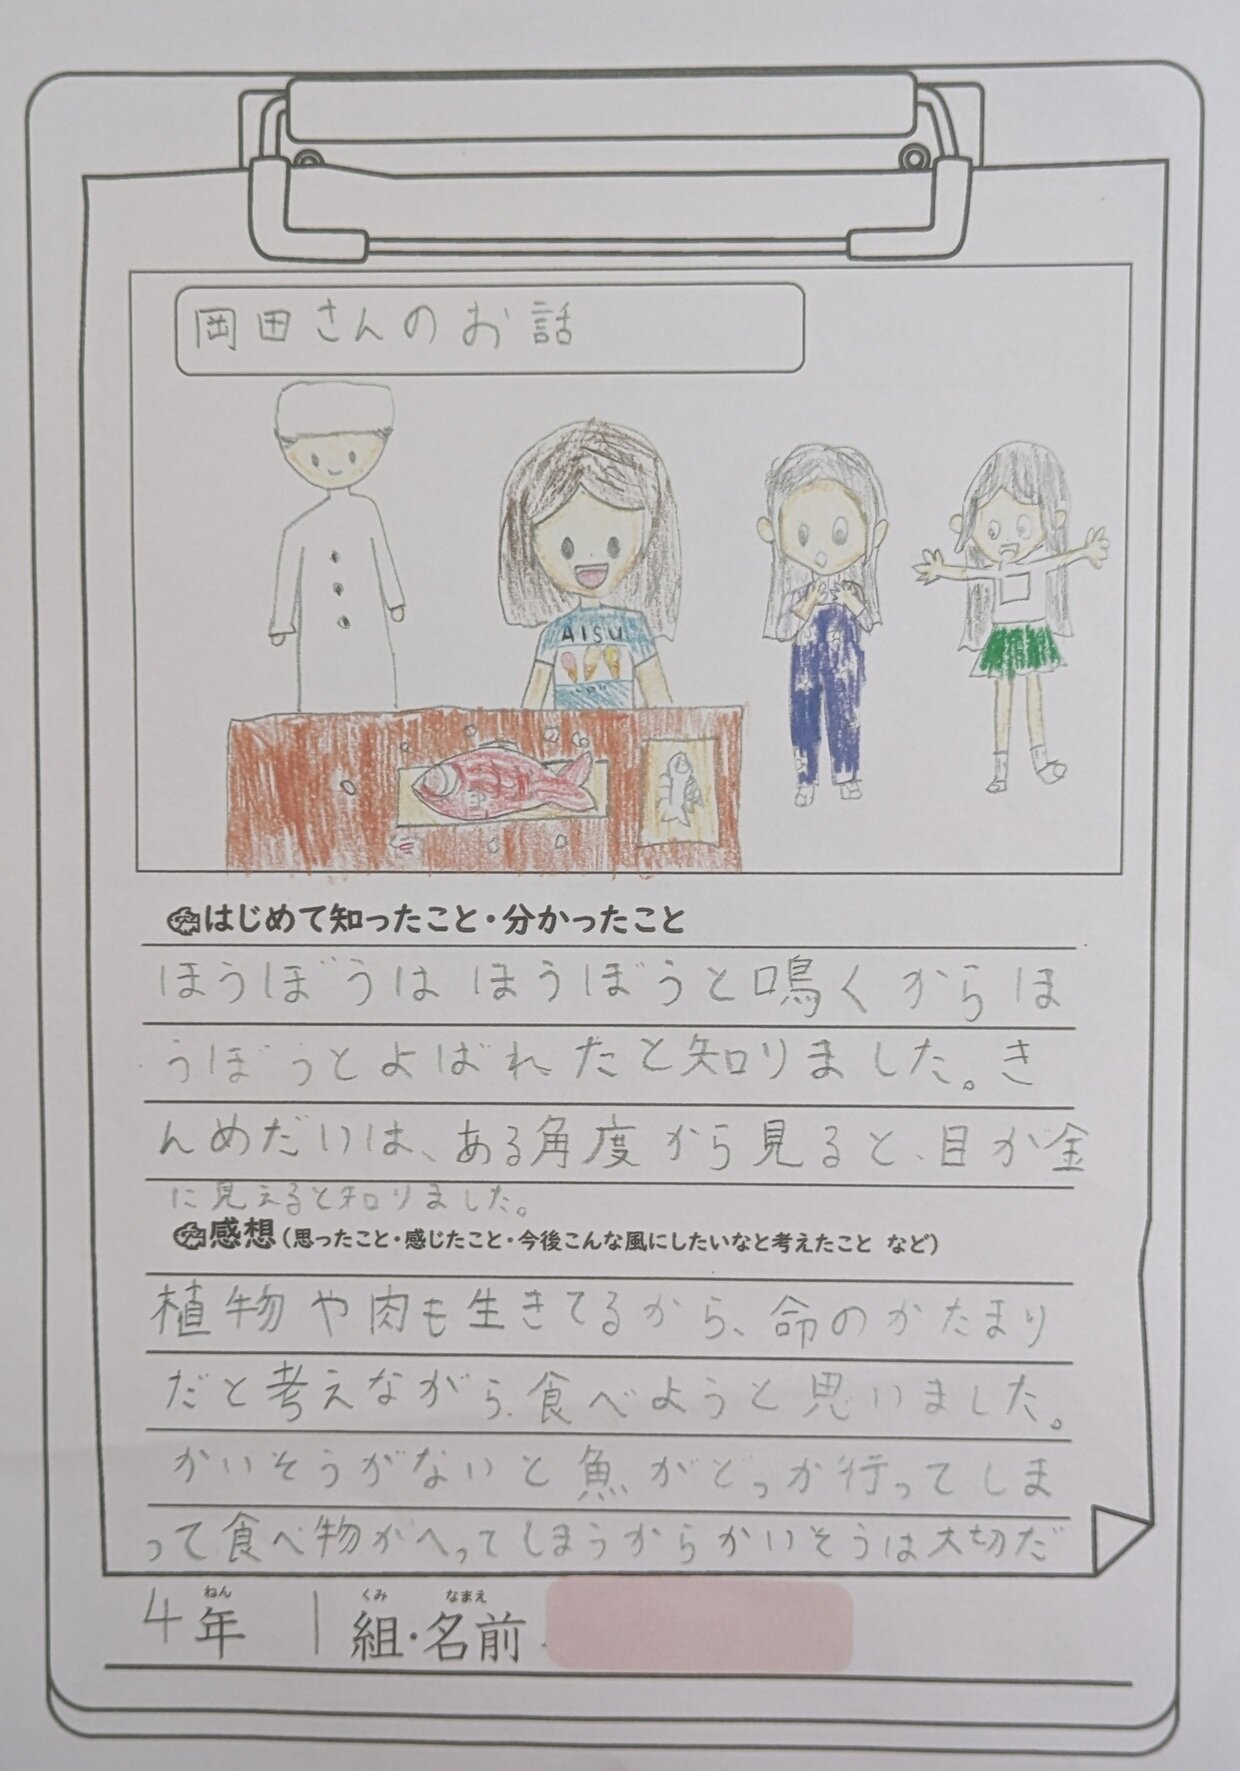 岡田さんのお話
AISU
はじめて知ったこと・分かったこと
ほうぼうは ほうぼうと鳴くからほ
うぼうとよばれたと知りました。き
んめだいは、ある角度から見ると、目が金
に見えると知りました。
感想(思ったこと・感じたこと・今後こんな風にしたいなと考えたこと など)
植物や肉も生きてるから、命のかたまり
だと考えながら、食べようと思いました。
かいそうがないと魚がどっか行ってしま
って食べ物がへってしまうからかいそうは大切だ
4年 1組・名前
ねん くみ なまえ